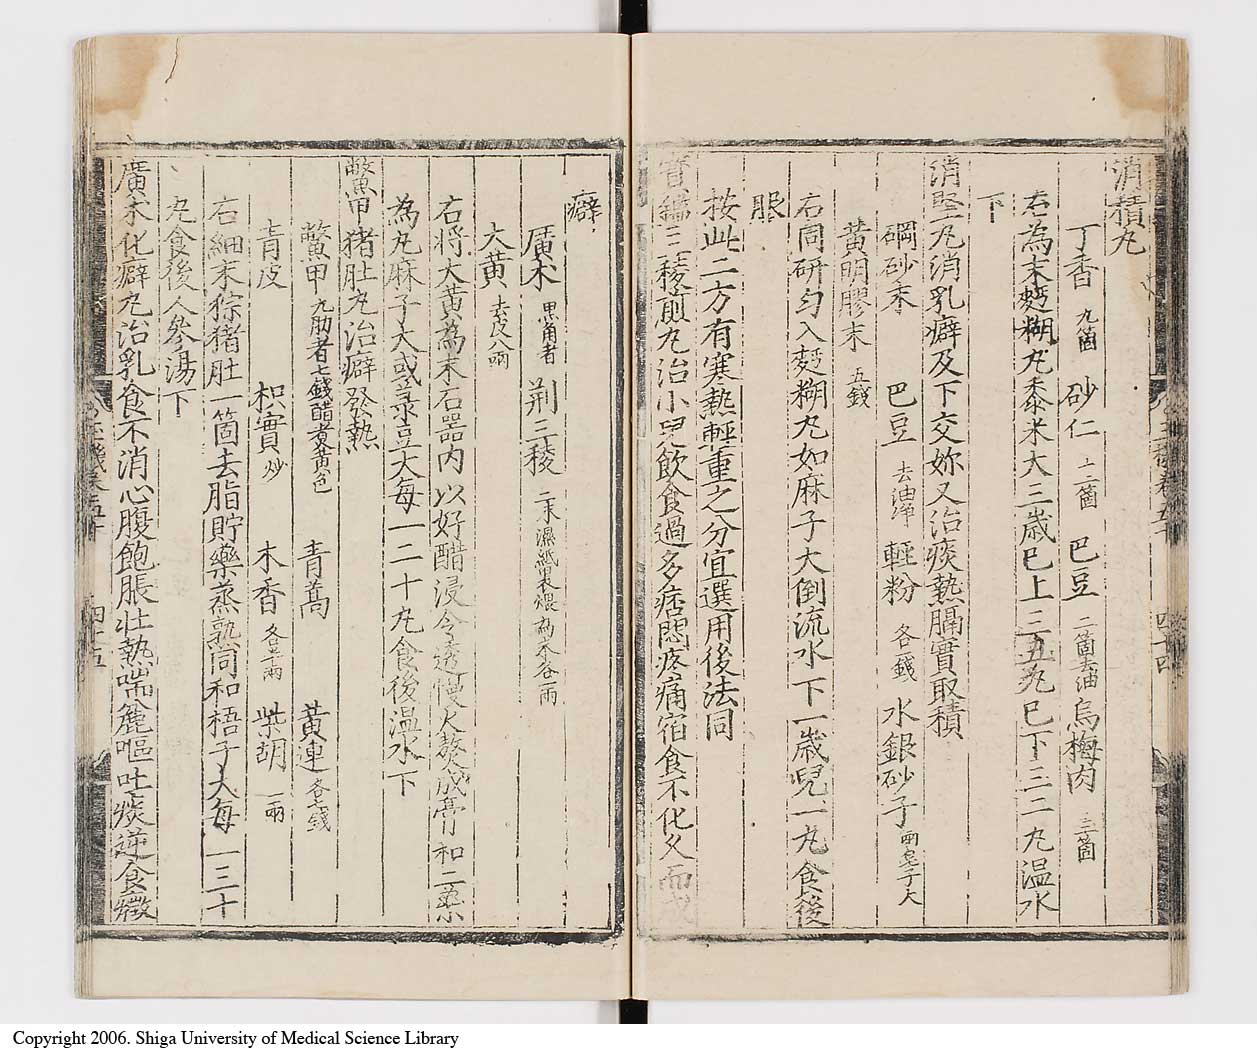 消積丸
丁香 九箇 砂仁 十二箇 巴豆 二箇去油 烏梅肉 三箇
右為末麪糊丸黍米大三歲巳上三五丸巳下三二丸温水
下
消堅丸消乳癖及下交妳又治痰熱膈實取積
硇砂末 巴豆 去油淨 輕粉 各一錢 水銀砂子 兩皂子大
黃明膠末 五錢
右同研勻入麪糊丸如麻子大倒流水下一歲兒一丸食後
服
按此二方有寒熱輕重之分宜選用後法同
寶鑑三稜煎丸治小兒飲食過多痞悶疼痛宿食不化久而成
癖
廣朮 黑角者 荆三稜 二末濕紙裹煨為末各一兩
大黃 去皮八兩
右將大黃為末石器内以好醋浸令透慢火熬成膏和二藥
為丸麻子大或菉豆大每一二十丸食後温水下
鱉甲猪肚丸治癖發熱
鱉甲 九肋者七錢醋煑黃色 青蒿 黃連 各七錢
青皮 枳實 炒 木香 各半兩 柴胡 一兩
右細末猔猪肚一箇去脂貯藥蒸熟同和梧子大每一三十
丸食後人參湯下
廣朮化癖丸治乳食不消心腹飽脹壯熱喘麄嘔吐痰逆食癥
四十四
四十五
Copyright 2006. Shiga University of Medical Science Library